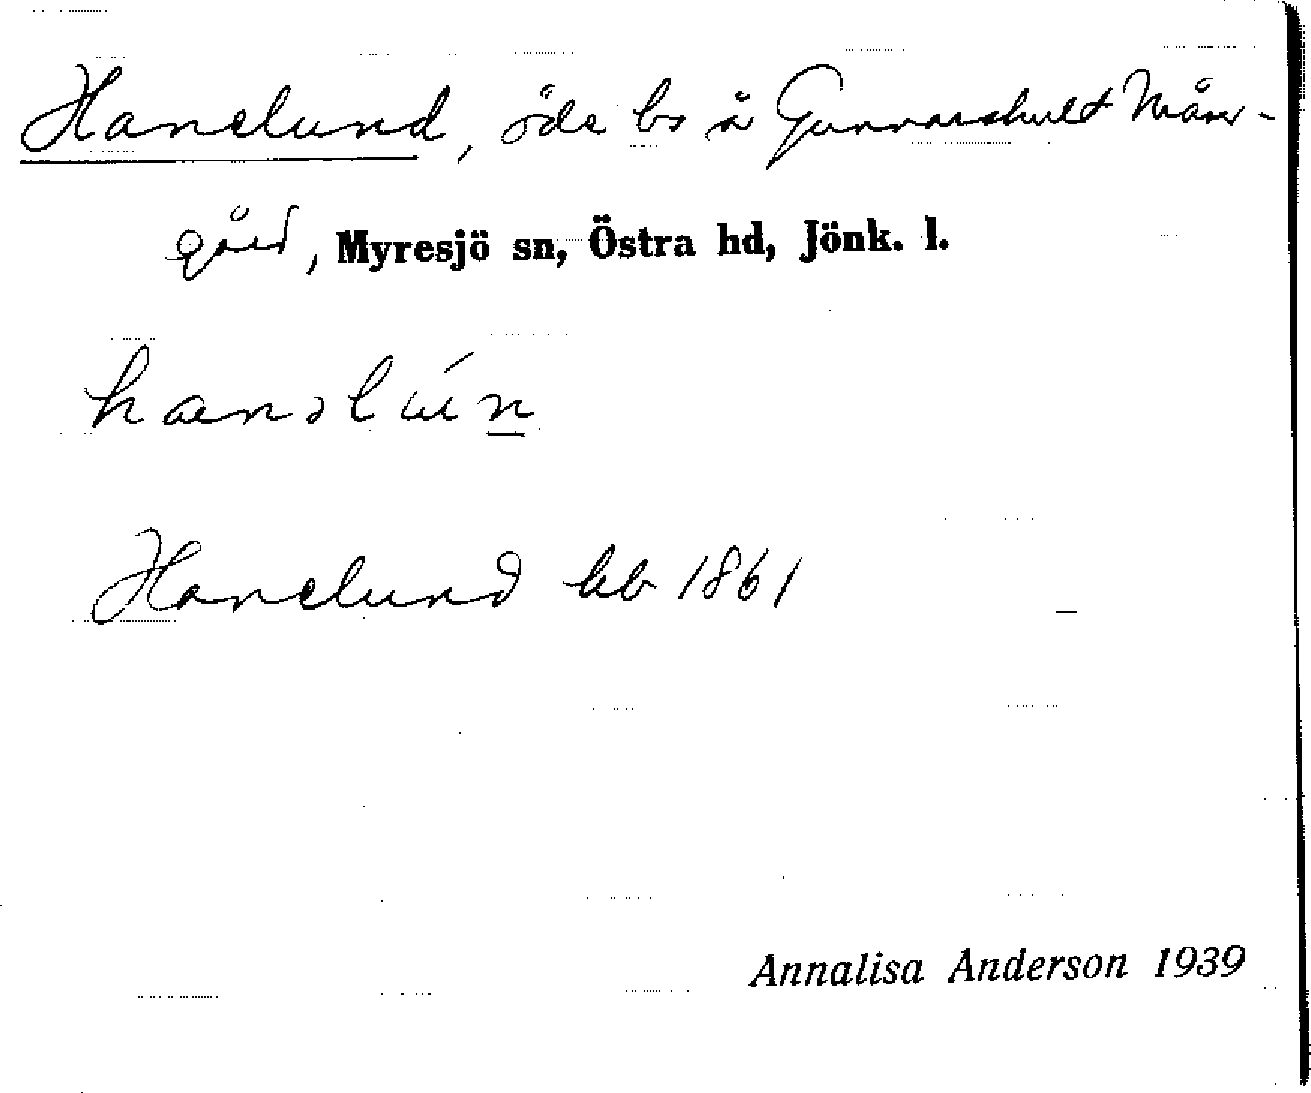 Hanelund, öde bs å Gunnarshult Måns-
gård, Myresjö sn, Östra hd, Jönk. l.
Hanelund hb 1861
Annalisa Anderson 1939